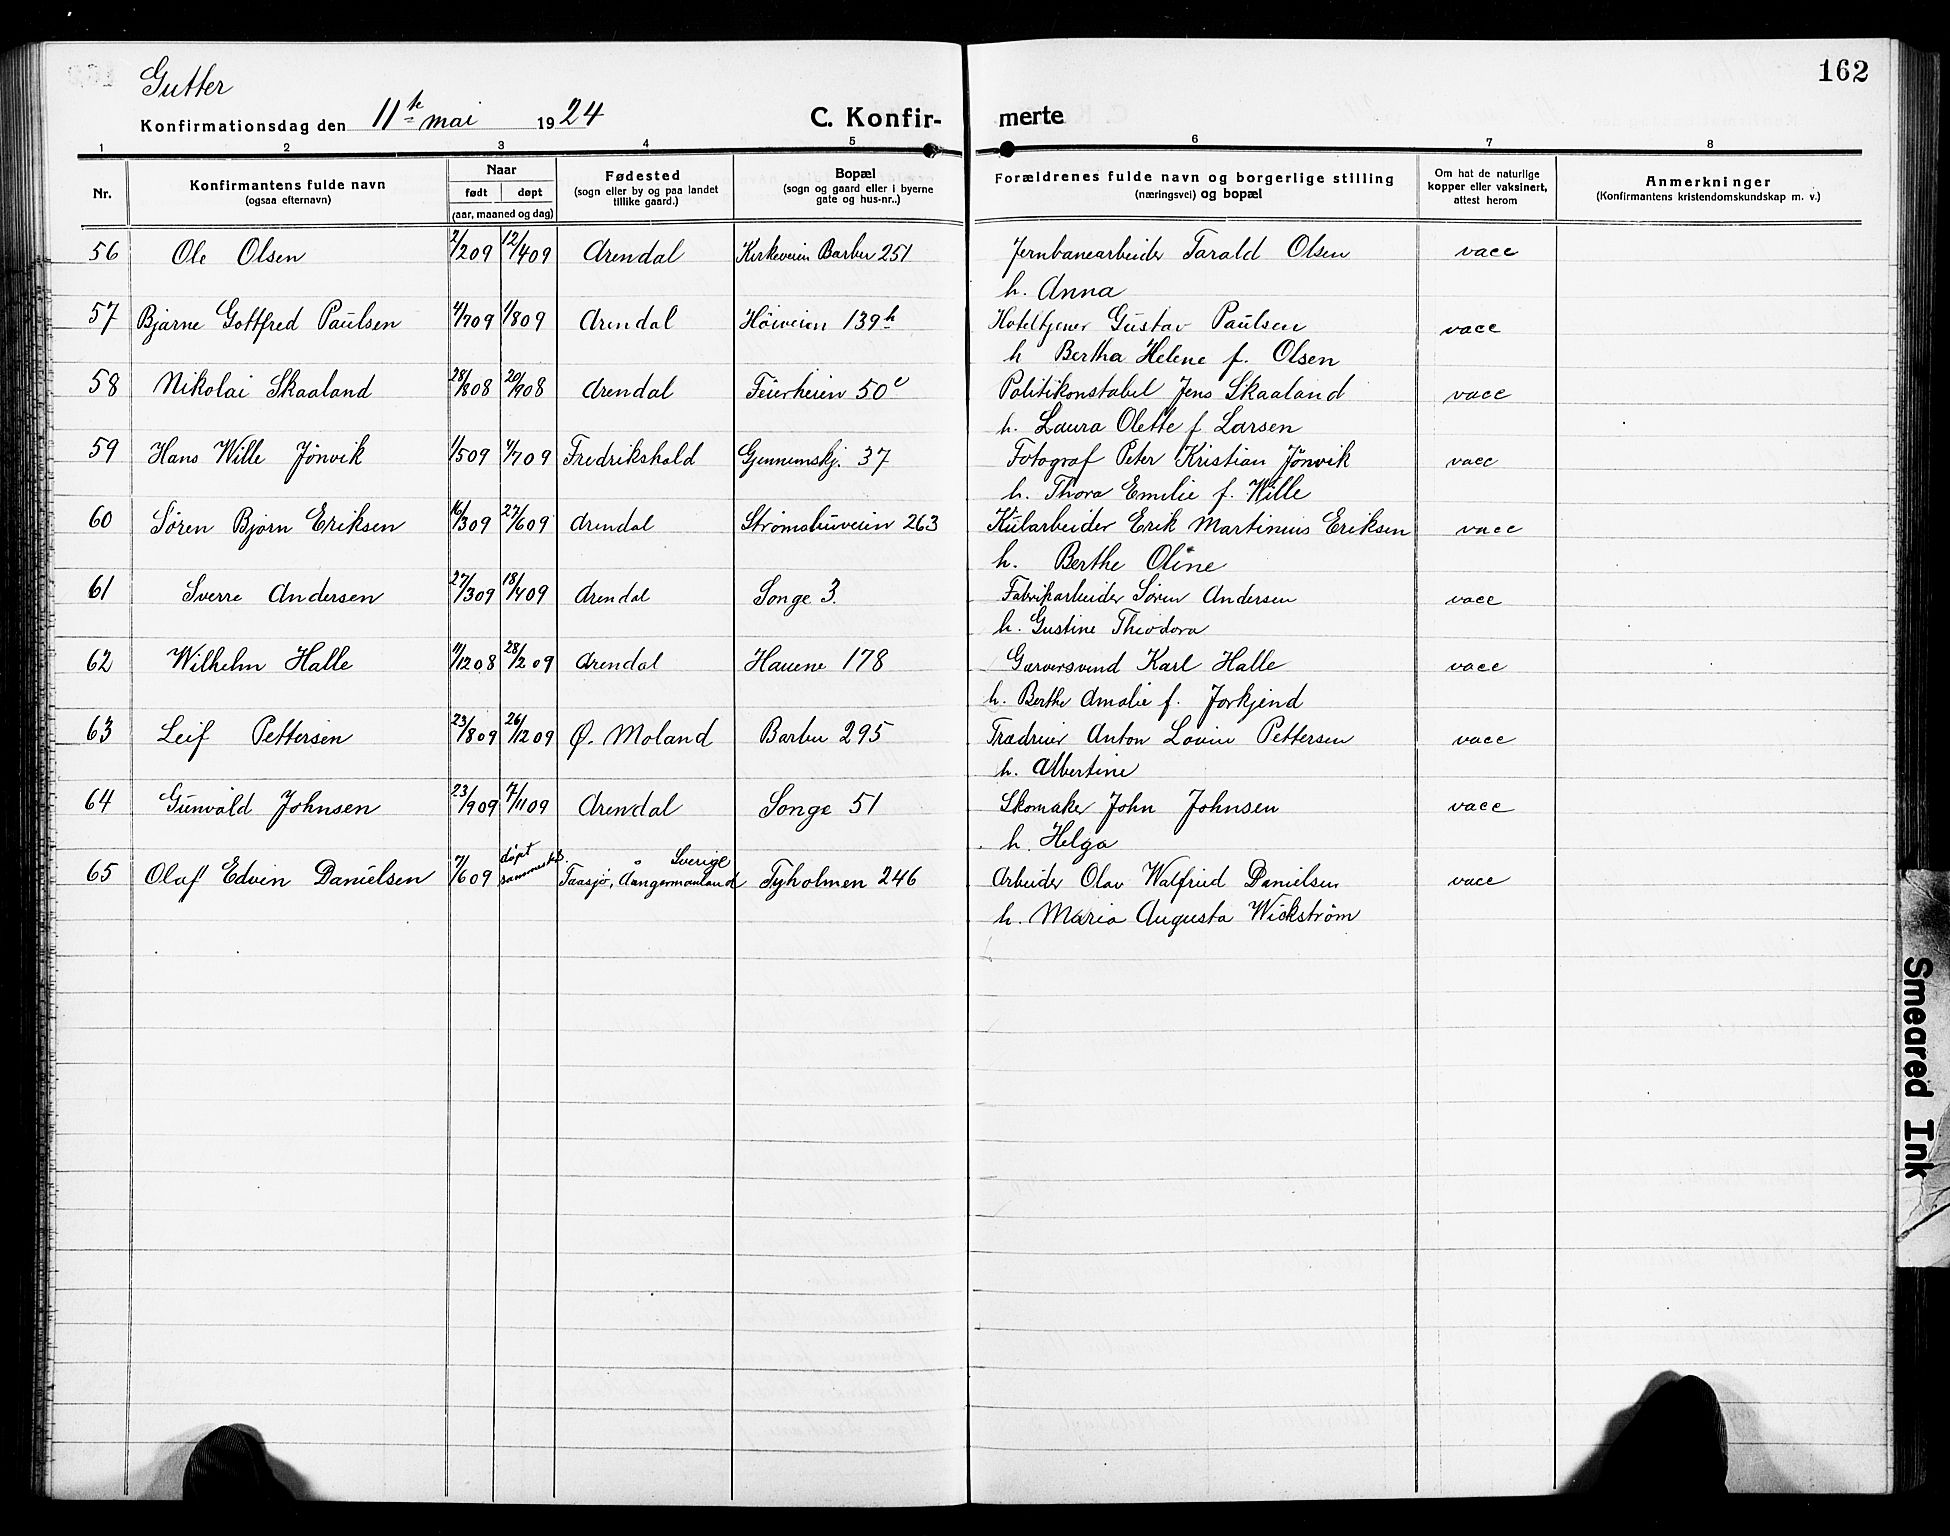 162
Gutter
Konfirmationsdag den 11te mai 1924
C. Konfir- merte
1 2 3 4 5 6 7 8
Nr.
Konfirmantens fulde navn
(ogsaa efternavn)
Naar
født døpt
(aar, maaned og dag)
Fødested
(sogn eller by og paa landet
tillike gaard.)
Bopæl
(sogn og gaard eller i byerne
gate og hus-nr..)
Forældrenes fulde navn og borgerlige stilling
(næringsvei) og bopæl
Om hat de naturlige
kopper eller vaksinert,
attest herom
Anmerkninger
(Konfirmantens kristendomskundskap m. v.)
56 Ole Olsen 2/2 09 12/4 09 Arendal Kirkeveien Barbu 251 Jernbanearbeider Tarald Olsen vacc
h. Anna
57 Bjarne Gottfred Paulsen 4/7 09 1/8 09 Arendal Høiveien 139b Hoteltjener Gustav Paulsen vacc
h Bertha Helene f. Olsen
58 Nikolai Skaaland 28/8 08 20/9 08 Arendal Feierheien 50c Politikonstabel Jens Skaaland vacc
h. Laura Olette f Larsen
59 Hans Wille Jönvik 1/5 09 4/7 09 Fredrikshald Gjennemskj. 37 Fotograf Peter Kristian Jönvik vacc
h. Thora Emilie f. Wille
60 Søren Bjørn Eriksen 16/3 09 27/6 09 Arendal Strømsbuveien 263 Kularbeider Erik Martinius Eriksen vacc
h. Berthe Oline
61 Sverre Andersen 27/3 09 18/4 09 Arendal Songe 3. Fabrikarbeider Søren Andersen vacc
h. Gustine Theodora
62 Wilhelm Halle 11/12 08 28/2 09 Arendal Hauene 178 Garversvend Karl Halle vacc
h. Berthe Amalie f. Jorkjend
63 Leif Pettersen 23/8 09 26/12 09 Ø. Moland Barbu 295 Anton Lovin Pettersen vacc
h. Albertine
64 Gunvald Johnsen 23/9 09 7/11 09 Arendal Songe 51 Skomaker John Johnsen vacc
h. Helga
65 Olaf Edvin Danielsen 7/6 09 døpt sammested. Taasjø, Ångermanland Sverige Tyholmen 246 Arbeider Olav Walfried Danielsen vacc
h. Maria Augusta Wickström
Smeared Ink